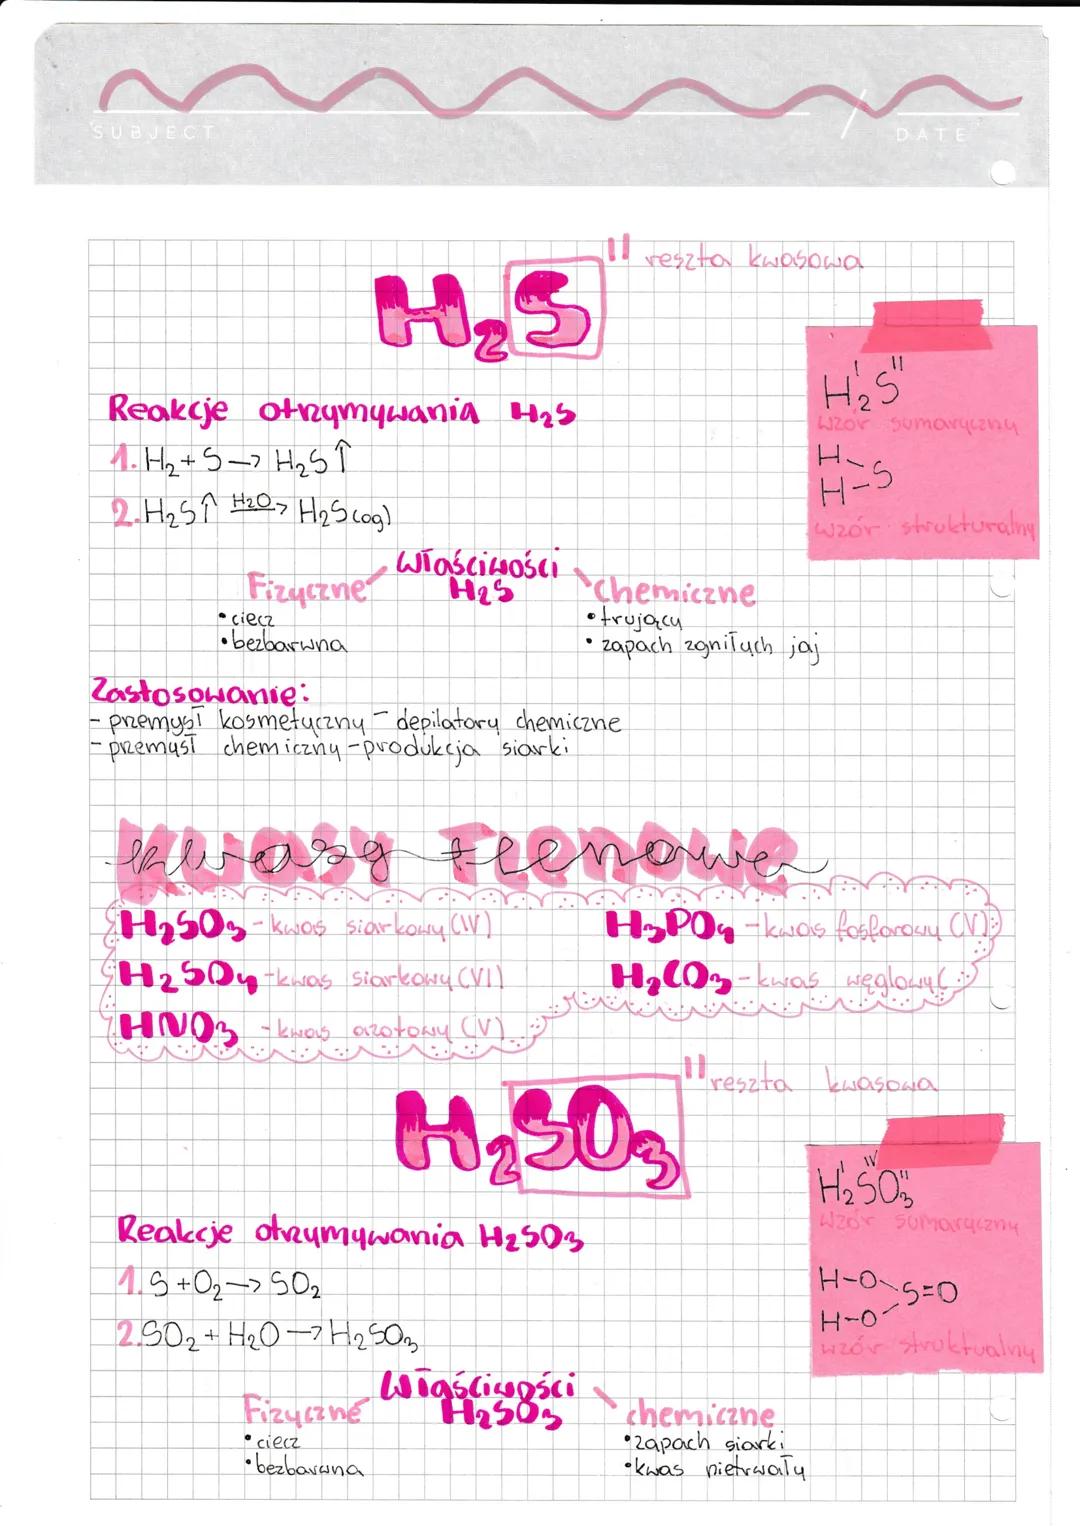 SUBJECT
DATE
H₂S
II reszta kwasowa
Reakcje otrzymywania H₂S
1. H₂ + S → H₂S↑
2. H₂S↑ H₂O→ H₂S(aq)
H₂ᴵSᴵᴵ
wzór sumaryczny
H
H-S
wzór strukturalny
Właściwości
H₂S
Fizyczne
• ciecz
• bezbarwna
chemiczne
• trujący
• zapach zgniłych jaj
Zastosowanie:
- przemysł kosmetyczny - depilatory chemiczne
- przemysł chemiczny - produkcja siarki
Kwasy Tlenowe
H₂SO₃ - kwas siarkowy (IV)
H₂SO₄ - kwas siarkowy (VI)
HNO₃ - kwas azotowy (V)
H₃PO₄ - kwas fosforowy (V)
H₂CO₃ - kwas węglowy(
H₂SO₃
II reszta kwasowa
Reakcje otrzymywania H₂SO₃
1. S + O₂ → SO₂
2. SO₂ + H₂O → H₂SO₃
H₂ᴵSᴵⱽO₃ᴵᴵ
wzór sumaryczny
H-O
S=O
H-O
wzór struktualny
Właściwości
H₂SO₃
Fizyczne
• ciecz
• bezbarwna
chemiczne
• zapach siarki
• kwas nietrwały